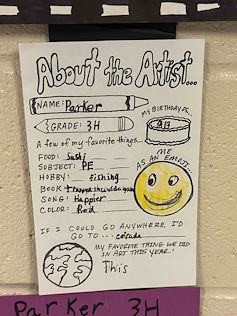 About the Artist...
NAME: Parker
MY BIRTHDAY IS
GRADE: 3H
A few of my favorite things...
ME
AS AN EMOJI...
FOOD: Sushi
SUBJECT: PE
HOBBY: fishing
BOOK:
SONG: Happier
COLOR: Red
IF I COULD GO ANYWHERE, I'D
GO TO...
MY FAVORITE THING WE DID
IN ART THIS YEAR!
This
Parker 3H